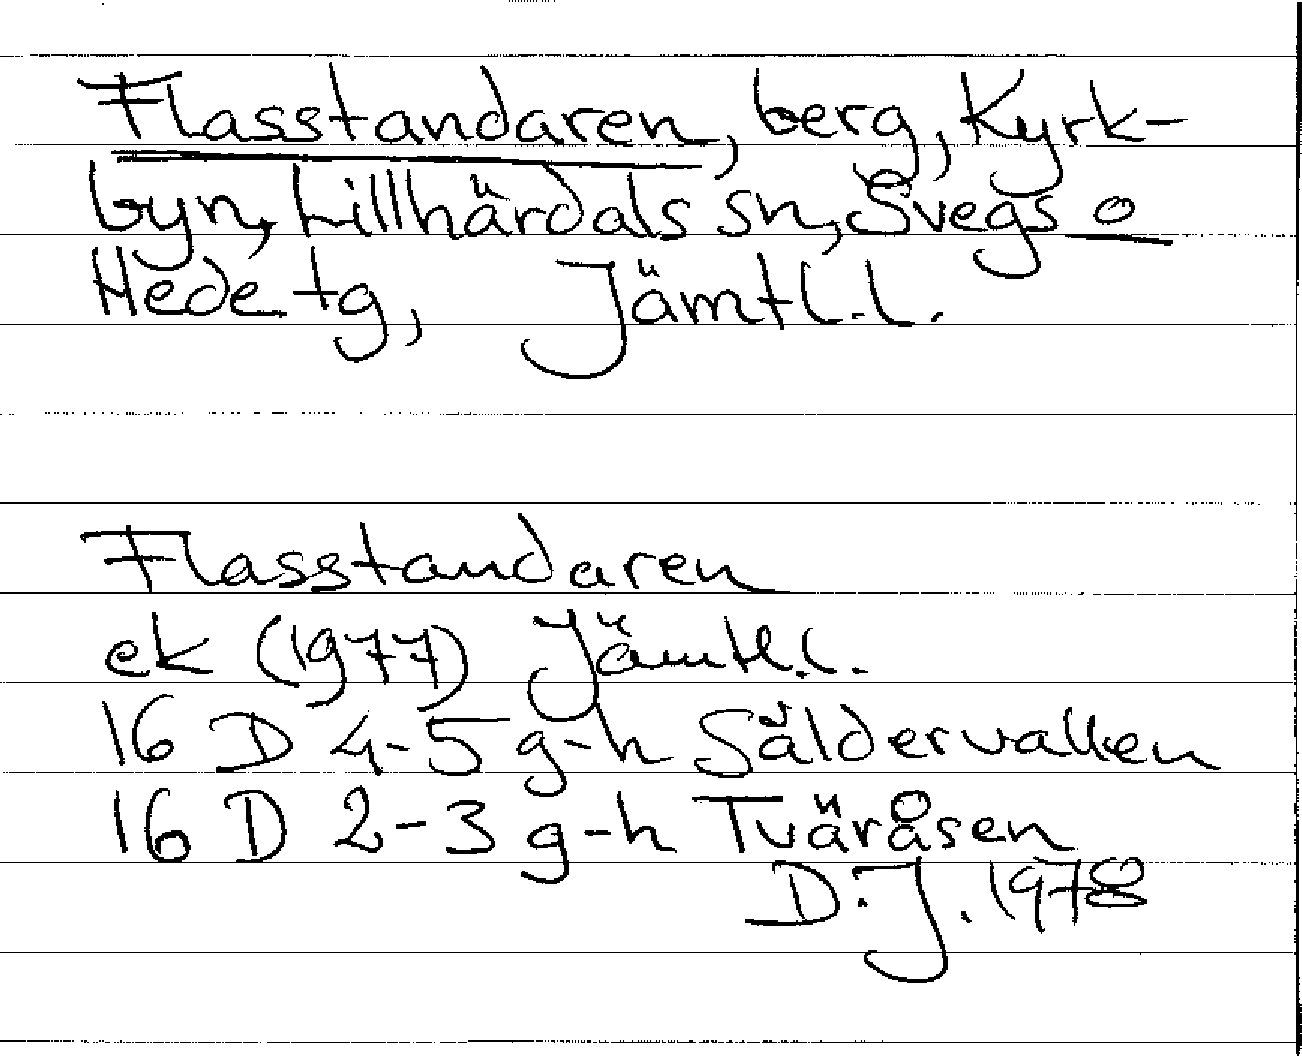 Flasstandaren, berg, Kyrk-
byn, Lillhärdals sn, Svegs o
Hede tg, Jämtl.l.
Flasstandaren
ek (1977) Jämtl.l.
16 D 4-5 g-h Säldervallen
16 D 2-3 g-h Tväråsen
D.J. 1978